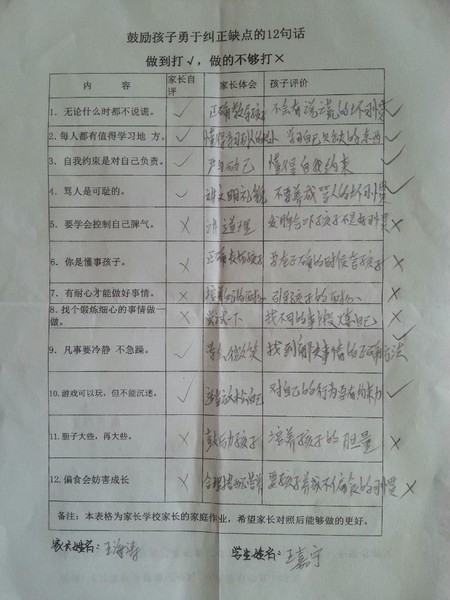 鼓励孩子勇于纠正缺点的12句话
做到打√，做的不够打×
内 容 家长自评 家长体会 孩子评价
1. 无论什么时都不说谎。 ✓ 正确教导孩子 不会有说谎的坏习惯 ✓
2. 每人都有值得学习地 方。 ✓ 懂得 ✓
3. 自我约束是对自己负责。 ✓ 严于 己 懂得自我约束 ✓
4. 骂人是可耻的。 ✓ 讲文明礼貌 不要养成骂人的坏习惯 ✓
5. 要学会控制自己脾气。 × 讲道理 发脾气 孩子不是好习惯 ×
6. 你是懂事孩子。 × 正确表扬孩子 孩子 ×
7. 有耐心才能做好事情。 × 培养 的耐心 孩子的耐心 ×
8. 找个锻炼细心的事情做一做。 × 尝试一下 找不同的事 炼自己 ×
9. 凡事要冷静 不急躁。 ✓ 微笑 找到解决事情的正确方法 ✓
10. 游戏可以玩，但不能沉迷。 ✓ 适当放松 对自己的行为要有约束力 ✓
11. 胆子大些，再大些。 × 鼓励孩子 培养孩子的胆量 ×
12. 偏食会妨害成长 × 合理搭配营养 要孩子养成不偏食的习惯 ×
备注：本表格为家长学校家长的家庭作业，希望家长对照后能够做的更好。
家长姓名：王海涛 学生姓名：王嘉宁